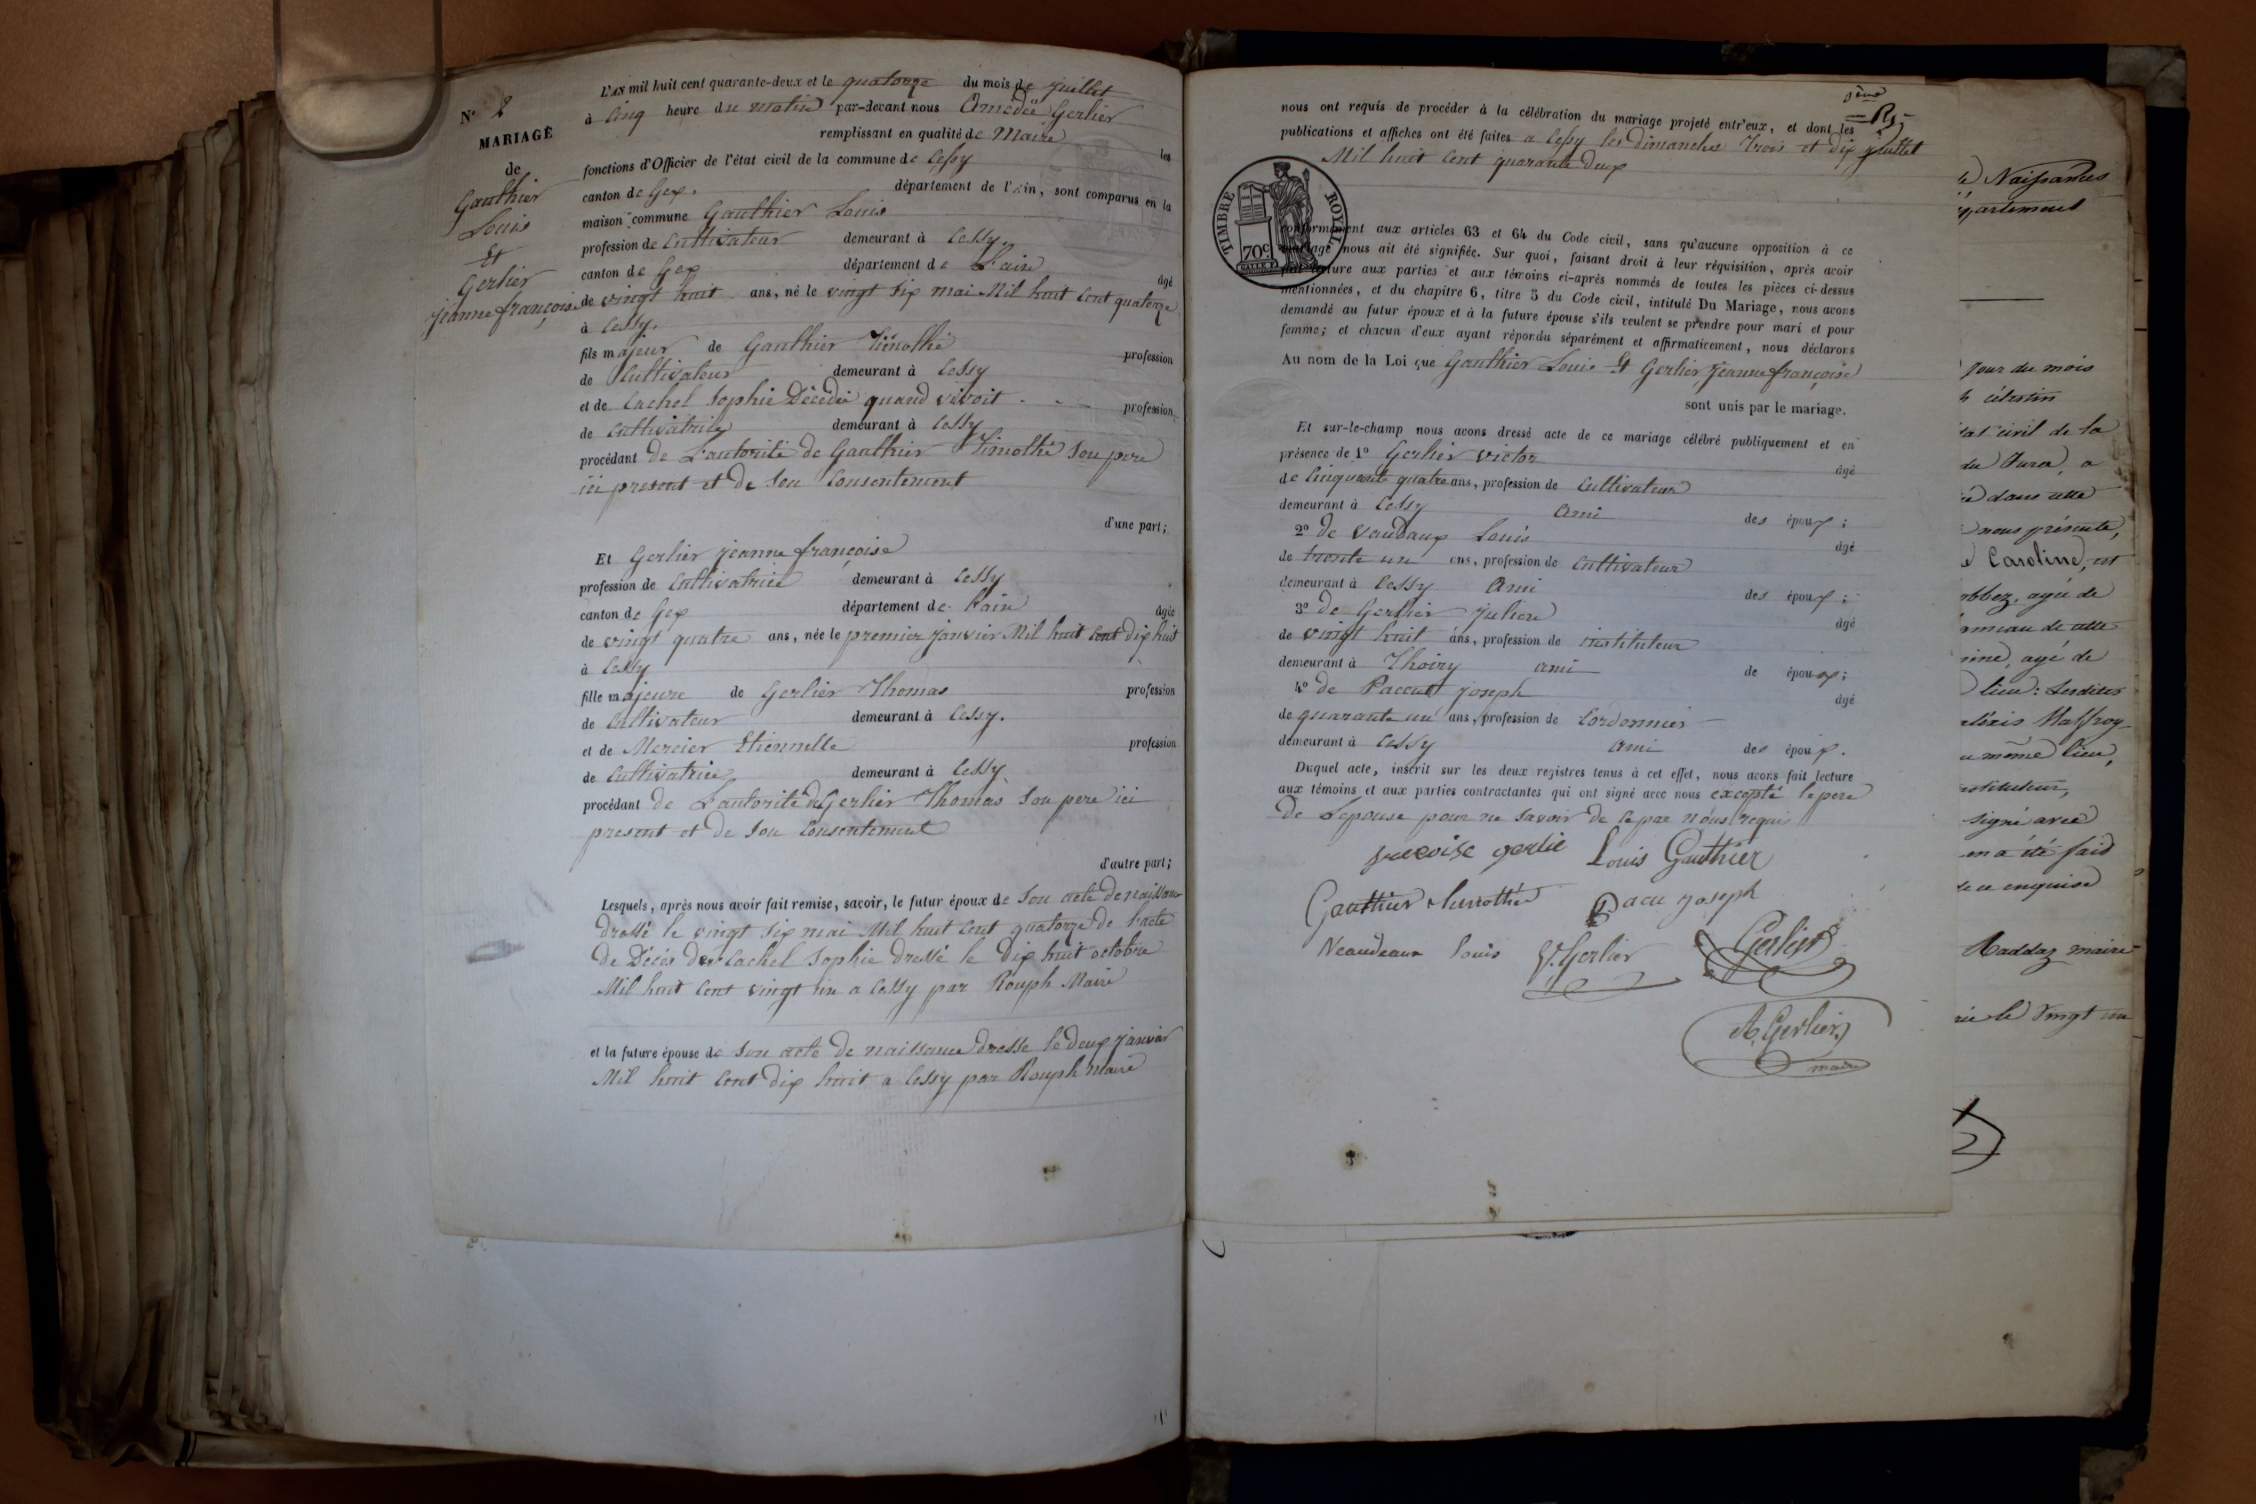 N° 2
MARIAGE
de
Gauthier
Louis
Et
Gerlier
jeanne françoise
L'AN mil huit cent quarante-deux et le quatorze du mois de juillet
à cinq heure du matin par-devant nous Amedée Gerlier
remplissant en qualité de Maire les
fonctions d'Officier de l'état civil de la commune de Cessy
canton de Gex. département de l'Ain, sont comparus en la
maison commune Gauthier Louis
profession de Cultivateur demeurant à Cessy.
canton de Gex département de L'ain âgé
de vingt huit ans, né le vingt six mai Mil huit cent quatorze
à Cessy.
fils majeur de Gauthier Timothé profession
de Cultivateur demeurant à Cessy
et de Cachel Sophie Décédée quand vivoit profession
de Cultivatrice demeurant à Cessy
procédant de L'autorité de Gauthier Timothé Son pere
ici present et de Son Consentement
d'une part;
Et Gerlier jeanne françoise
profession de Cultivatrice demeurant à Cessy
canton de Gex département de L'ain âgée
de vingt quatre ans, née le premier janvier Mil huit cent dix huit
à Cessy
fille majeure de Gerlier Thomas profession
de Cultivateur demeurant à Cessy.
et de Mercier Etiennette profession
de Cultivatrice demeurant à Cessy
procédant de L'autorité de Gerlier Thomas Son pere ici
present et de Son Consentement
d'autre part;
Lesquels, après nous avoir fait remise, savoir, le futur époux de Son acte de naissance
dressé le vingt six mai Mil huit Cent quatorze de l'acte
de Décès de Cachel Sophie dressé le dix huit octobre
Mil huit Cent vingt un a Cessy par Rouph Maire
et la future épouse de Son acte de naissance dressé le deux janvier
Mil huit Cent dix huit a Cessy par Rouph Maire
nous ont requis de procéder à la célébration du mariage projeté entr'eux, et dont les
publications et affiches ont été faites a Cessy les dimanches Trois et dix juillet
Mil huit Cent quarante deux
TIMBRE ROYAL
70 c.
conformément aux articles 63 et 64 du Code civil, sans qu'aucune opposition à ce
mariage nous ait été signifiée. Sur quoi, faisant droit à leur réquisition, après avoir
fait lecture aux parties et aux témoins ci-après nommés de toutes les pièces ci-dessus
mentionnées, et du chapitre 6, titre 5 du Code civil, intitulé Du Mariage, nous avons
demandé au futur époux et à la future épouse s'ils veulent se prendre pour mari et pour
femme; et chacun d'eux ayant répondu séparément et affirmativement, nous déclarons
Au nom de la Loi que Gauthier Louis Et Gerlier jeanne françoise
sont unis par le mariage.
Et sur-le-champ nous avons dressé acte de ce mariage célébré publiquement et en
présence de 1° Gerlier victor âgé
de Cinquante quatre ans, profession de Cultivateur
demeurant à Cessy Ami des époux;
2° de Vaudaux Louis âgé
de trente un ans, profession de Cultivateur
demeurant à Cessy Ami des époux;
3° de Gerlier Julien âgé
de vingt huit ans, profession de instituteur
demeurant à Thoiry ami de époux;
4° de Paccut joseph âgé
de quarante un ans, profession de Cordonnier
demeurant à Cessy ami des époux.
Duquel acte, inscrit sur les deux registres tenus à cet effet, nous avons fait lecture
aux témoins et aux parties contractantes qui ont signé avec nous excepté le pere
de L'epouse pour ne savoir de ce par nous requi
gerlie Louis Gauthier
Gauthier timothé Pacu joseph
Louis V. Gerlier Gerlier
A. Gerlier
maire
de Naissances
jour du mois
célestin
état civil de la
du Jura, a
dans cette
nous présente,
Caroline, est
agée de
hameau de cette
agé de
lieu:
même lieu,
instituteur,
signé avec
m'a été fait
enquise
Raddaz maire
le Vingt un